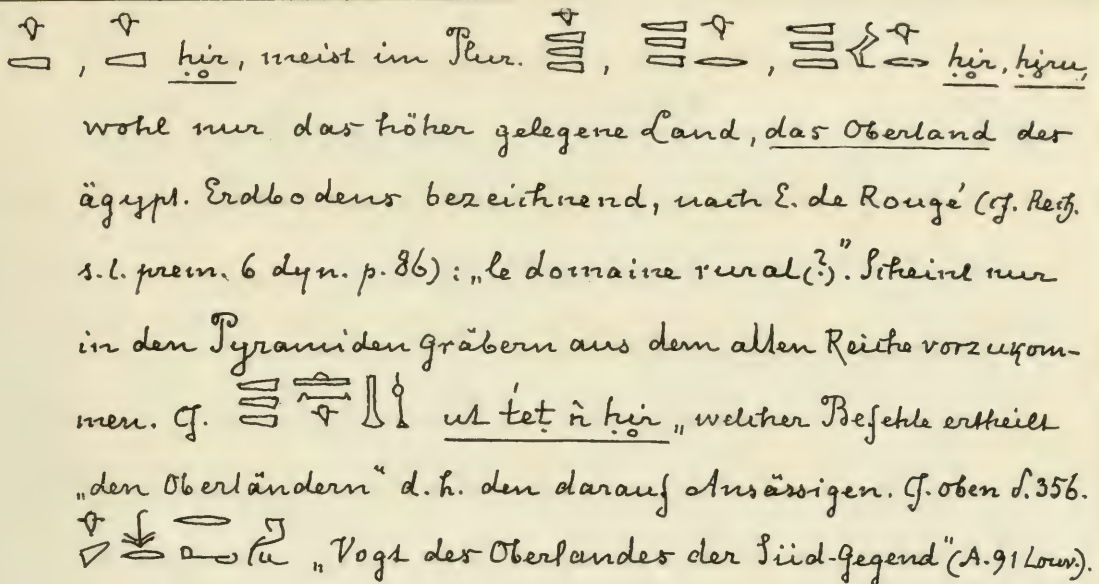 , ḥir, meist im Plur. , , ḥir, ḥiru,
wohl nur das höher gelegene Land, das Oberland des
ägypt. Erdbodens bezeichnend, nach E. de Rougé (cf. Rech.
s. l. prem. 6 dyn. p. 86): „le domaine rural (?)”. Scheint nur
in den Pyramiden Gräbern aus dem alten Reiche vorzukom-
men. Cf. ut ṭeṭ n ḥir „welcher Befehle ertheilt
„den Oberländern“ d. h. den darauf Ansässigen. Cf. oben S. 356.
„Vogt des Oberlandes der Süd-Gegend“ (A. 91 Louv.).